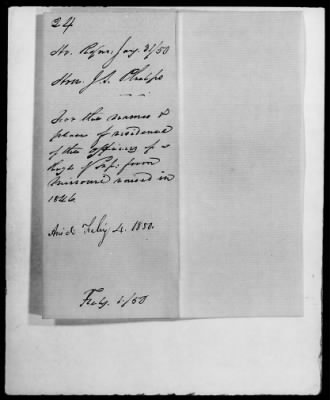 24
Ho. Reps. Jany. 31/50
Hon. J. S. Phelps
For the names &
place of residence
of the officers of a
Regt. of Inf: from
Missouri raised in
1846.
Ansd Feby 4. 1850.
Feby. 1/50